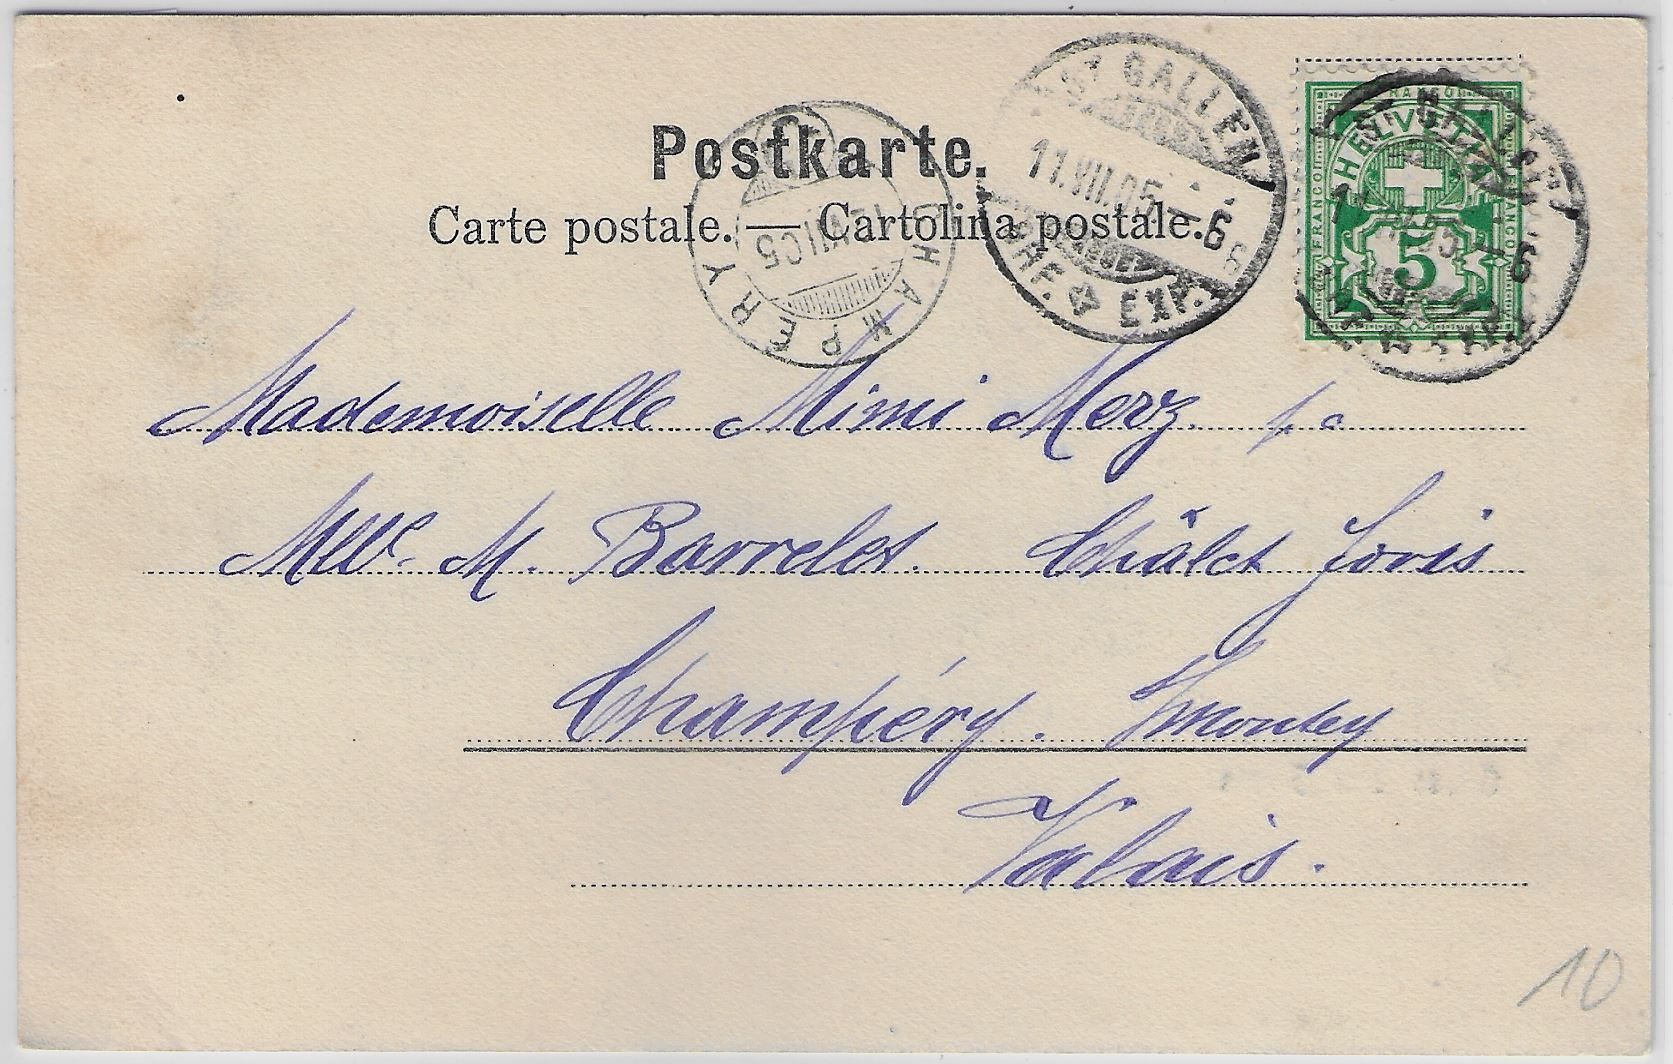 Postkarte.
Carte postale. — Cartolina postale.
ST. GALLEN
11.VII.05
6
BHF. EXP.
CHAMPÉRY
12.VII.05
FRANCO
HELVETIA
FRANCO
5
Mademoiselle Mimi Merz. p. a
Mlle. M. Barrelet. Châlet Joris
Champéry. s/ Montey
Valais.
10